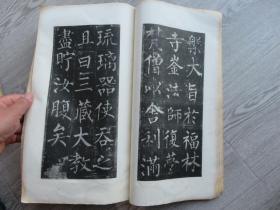 槃大旨於福林
寺崟法師復夢
梵僧以舍利滿
琉璃器使吞之
且曰三藏大教
盡貯汝腹矣